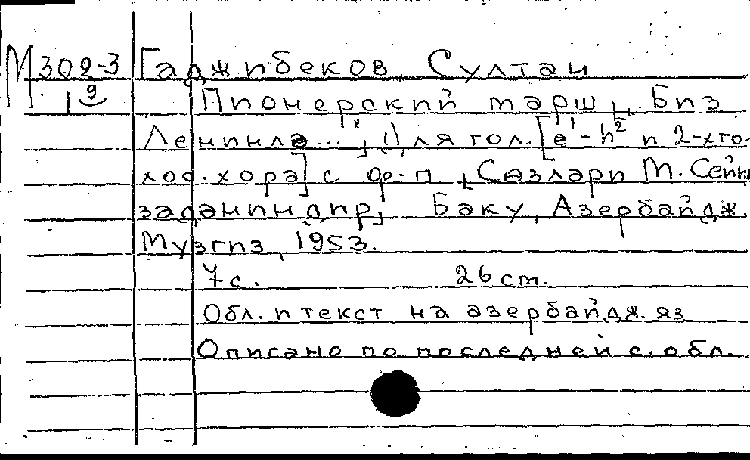 М 302-3 Гаджибеков, Султан
19 Пионерский марш, Биз
Ленинлә...", Для гол. [e¹-h² и 2-хго-
лос. хора] с ф-п. Сөзләри М. Сейид
заданиндир, Баку, Азербайдж.
Музгиз, 1953.
7 с. 26 cm.
Обл. и текст на азербайдж. яз
Описано по последней с. обл.